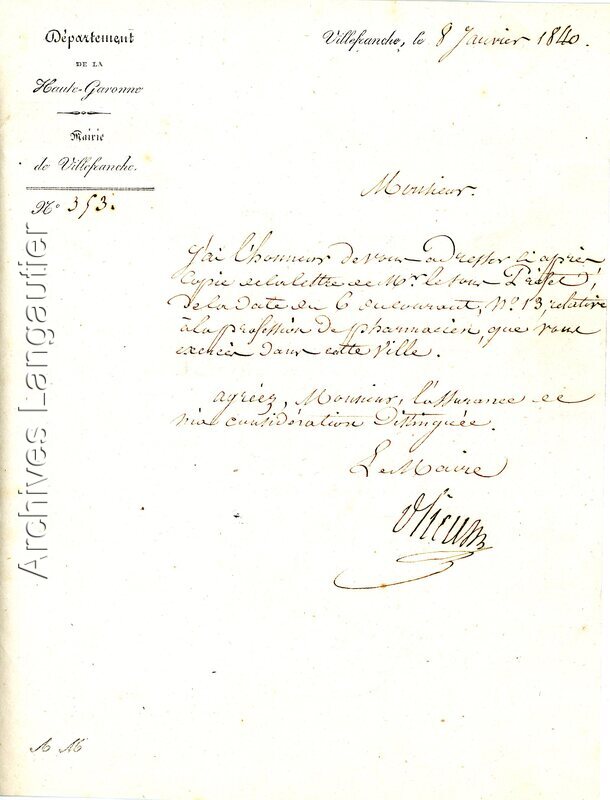 Département
DE LA
Haute-Garonne
Mairie
de Villefranche.
N° 353.
Villefranche, le 8 Janvier 1840.
Monsieur.
J'ai l'honneur de vous adresser ci après
Copie de la lettre de Mr. le sous Préfet,
de la date du 6 du courant, N° 13, relative
à la profession de pharmacien, que vous
exercés dans cette ville.
agréez, Monsieur, l'assurance de
ma considération Distinguée.
Le Maire
A M
Archives Langautier